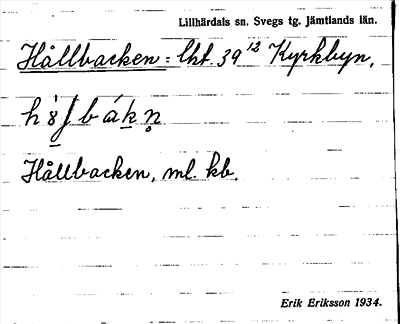 Lillhärdals sn. Svegs tg. Jämtlands län.
Hållbacken: lht. 39¹² Kyrkbyn.
Hållbacken, ml. kb.
Erik Eriksson 1934.